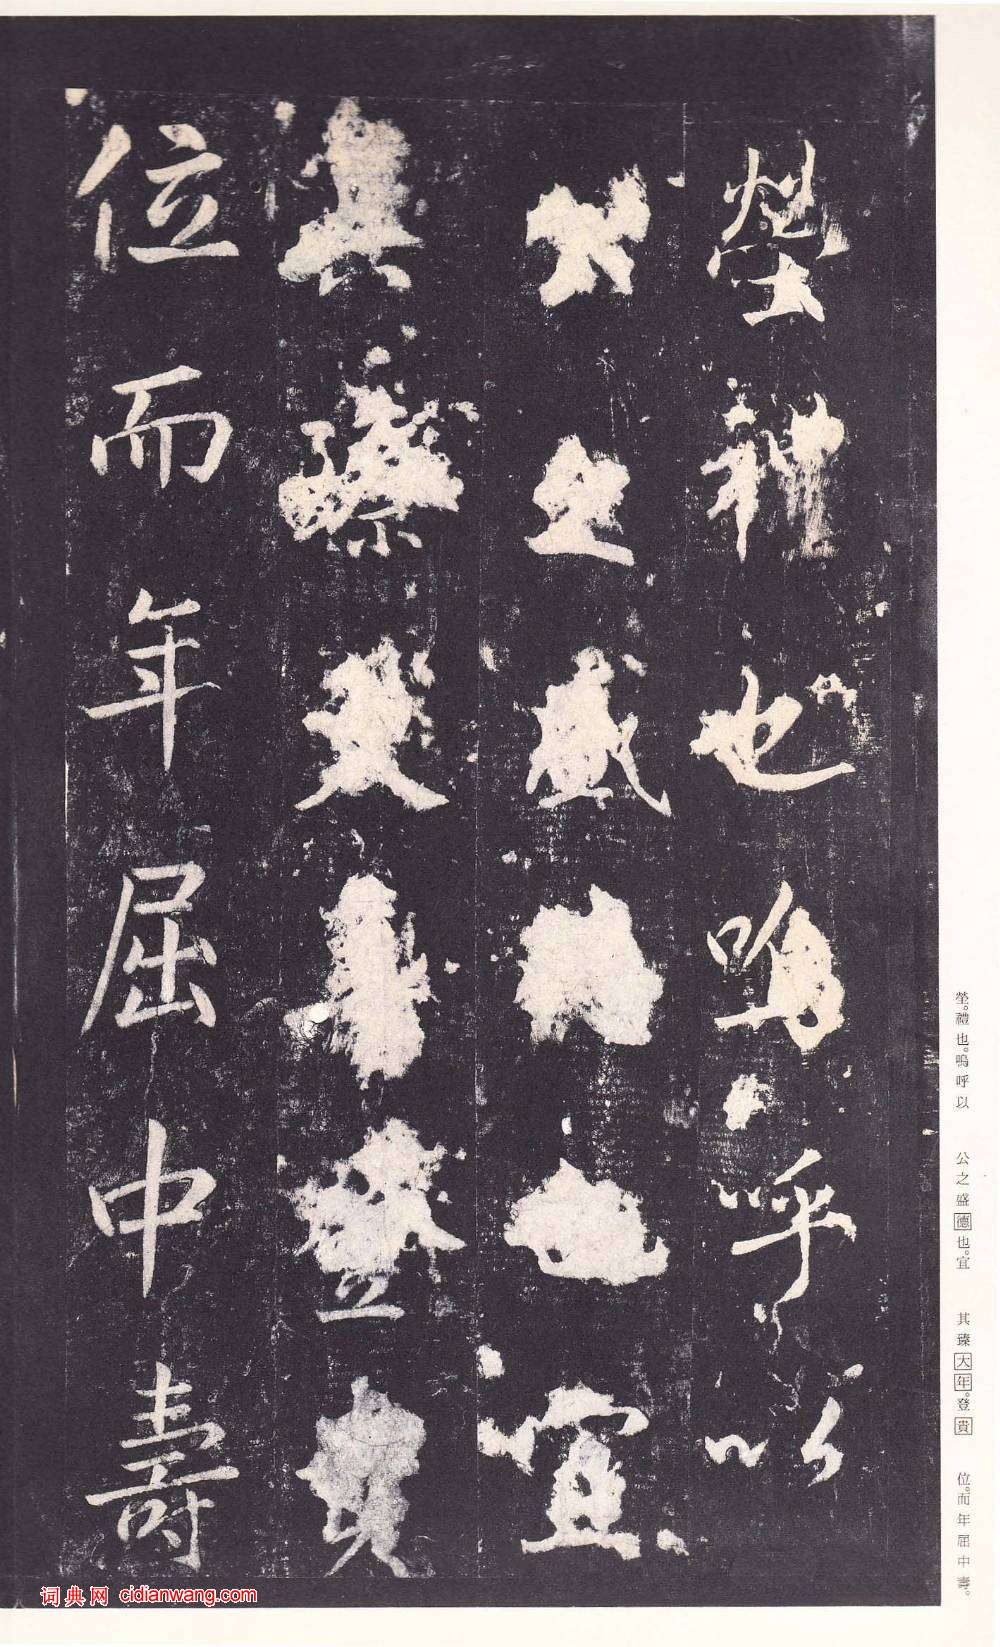 塋禮也嗚呼以
公之盛也宜
其臻登
位而年屈中壽
塋。禮也。嗚呼以　公之盛德也。宜　其臻大年。登貴　位。而年屈中壽。
词典网 cidianwang.com